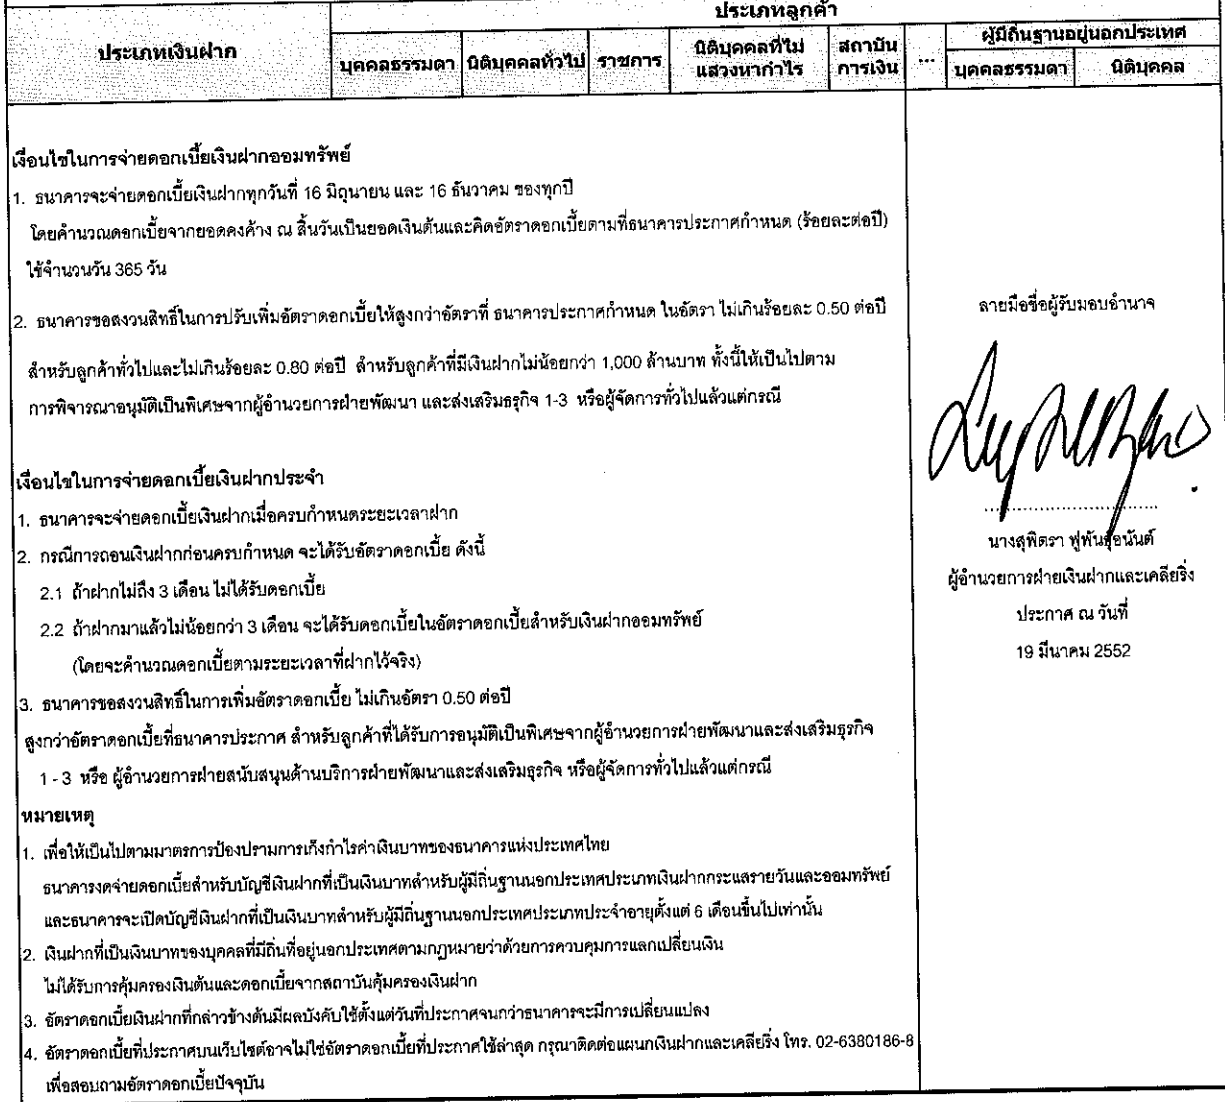 ประเภทลูกค้า
ประเภทเงินฝาก
บุคคลธรรมดา นิติบุคคลทั่วไป ราชการ นิติบุคคลที่ไม่แสวงหากำไร สถาบันการเงิน ... ผู้มีถิ่นฐานอยู่นอกประเทศ
บุคคลธรรมดา นิติบุคคล
เงื่อนไขในการจ่ายดอกเบี้ยเงินฝากออมทรัพย์
1. ธนาคารจะจ่ายดอกเบี้ยเงินฝากทุกวันที่ 16 มิถุนายน และ 16 ธันวาคม ของทุกปี
โดยคำนวณดอกเบี้ยจากยอดคงค้าง ณ สิ้นวันเป็นยอดเงินต้นและคิดอัตราดอกเบี้ยตามที่ธนาคารประกาศกำหนด (ร้อยละต่อปี)
ใช้จำนวนวัน 365 วัน
2. ธนาคารขอสงวนสิทธิ์ในการปรับเพิ่มอัตราดอกเบี้ยให้สูงกว่าอัตราที่ ธนาคารประกาศกำหนด ในอัตรา ไม่เกินร้อยละ 0.50 ต่อปี
สำหรับลูกค้าทั่วไปและไม่เกินร้อยละ 0.80 ต่อปี สำหรับลูกค้าที่มีเงินฝากไม่น้อยกว่า 1,000 ล้านบาท ทั้งนี้ให้เป็นไปตาม
การพิจารณาอนุมัติเป็นพิเศษจากผู้อำนวยการฝ่ายพัฒนา และส่งเสริมธุรกิจ 1-3 หรือผู้จัดการทั่วไปแล้วแต่กรณี
เงื่อนไขในการจ่ายดอกเบี้ยเงินฝากประจำ
1. ธนาคารจะจ่ายดอกเบี้ยเงินฝากเมื่อครบกำหนดระยะเวลาฝาก
2. กรณีการถอนเงินฝากก่อนครบกำหนด จะได้รับอัตราดอกเบี้ย ดังนี้
2.1 ถ้าฝากไม่ถึง 3 เดือน ไม่ได้รับดอกเบี้ย
2.2 ถ้าฝากมาแล้วไม่น้อยกว่า 3 เดือน จะได้รับดอกเบี้ยในอัตราดอกเบี้ยสำหรับเงินฝากออมทรัพย์
(โดยจะคำนวณดอกเบี้ยตามระยะเวลาที่ฝากไว้จริง)
3. ธนาคารขอสงวนสิทธิ์ในการเพิ่มอัตราดอกเบี้ย ไม่เกินอัตรา 0.50 ต่อปี
สูงกว่าอัตราดอกเบี้ยที่ธนาคารประกาศ สำหรับลูกค้าที่ได้รับการอนุมัติเป็นพิเศษจากผู้อำนวยการฝ่ายพัฒนาและส่งเสริมธุรกิจ
1 - 3 หรือ ผู้อำนวยการฝ่ายสนับสนุนด้านบริการฝ่ายพัฒนาและส่งเสริมธุรกิจ หรือผู้จัดการทั่วไปแล้วแต่กรณี
หมายเหตุ
1. เพื่อให้เป็นไปตามมาตรการป้องปรามการเก็งกำไรค่าเงินบาทของธนาคารแห่งประเทศไทย
ธนาคารงดจ่ายดอกเบี้ยสำหรับบัญชีเงินฝากที่เป็นเงินบาทสำหรับผู้มีถิ่นฐานนอกประเทศประเภทเงินฝากกระแสรายวันและออมทรัพย์
และธนาคารจะเปิดบัญชีเงินฝากที่เป็นเงินบาทสำหรับผู้มีถิ่นฐานนอกประเทศประเภทประจำอายุตั้งแต่ 6 เดือนขึ้นไปเท่านั้น
2. เงินฝากที่เป็นเงินบาทของบุคคลที่มีถิ่นที่อยู่นอกประเทศตามกฎหมายว่าด้วยการควบคุมการแลกเปลี่ยนเงิน
ไม่ได้รับการคุ้มครองเงินต้นและดอกเบี้ยจากสถาบันคุ้มครองเงินฝาก
3. อัตราดอกเบี้ยเงินฝากที่กล่าวข้างต้นมีผลบังคับใช้ตั้งแต่วันที่ประกาศจนกว่าธนาคารจะมีการเปลี่ยนแปลง
4. อัตราดอกเบี้ยที่ประกาศบนเว็บไซต์อาจไม่ใช่อัตราดอกเบี้ยที่ประกาศใช้ล่าสุด กรุณาติดต่อแผนกเงินฝากและเคลียริ่ง โทร. 02-6380186-8
เพื่อสอบถามอัตราดอกเบี้ยปัจจุบัน
ลายมือชื่อผู้รับมอบอำนาจ
นางสุพิตรา ฟูพันธุ์อนันต์
ผู้อำนวยการฝ่ายเงินฝากและเคลียริ่ง
ประกาศ ณ วันที่
19 มีนาคม 2552